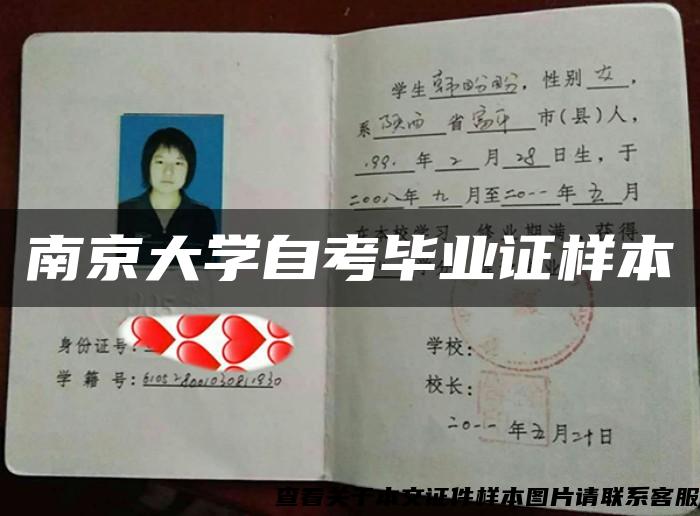 学生韩盼盼,性别女,
系陕西省富平市(县)人,
1991年2月28日生,于
二00八年九月至二0一一年五月
在本校学习,终业期满,获得
南京大学自考毕业证样本
身份证号:
学籍号:610528001030811930
学校:
校长:
二0一一年五月二十日
查看关于本文证件样本图片请联系客服